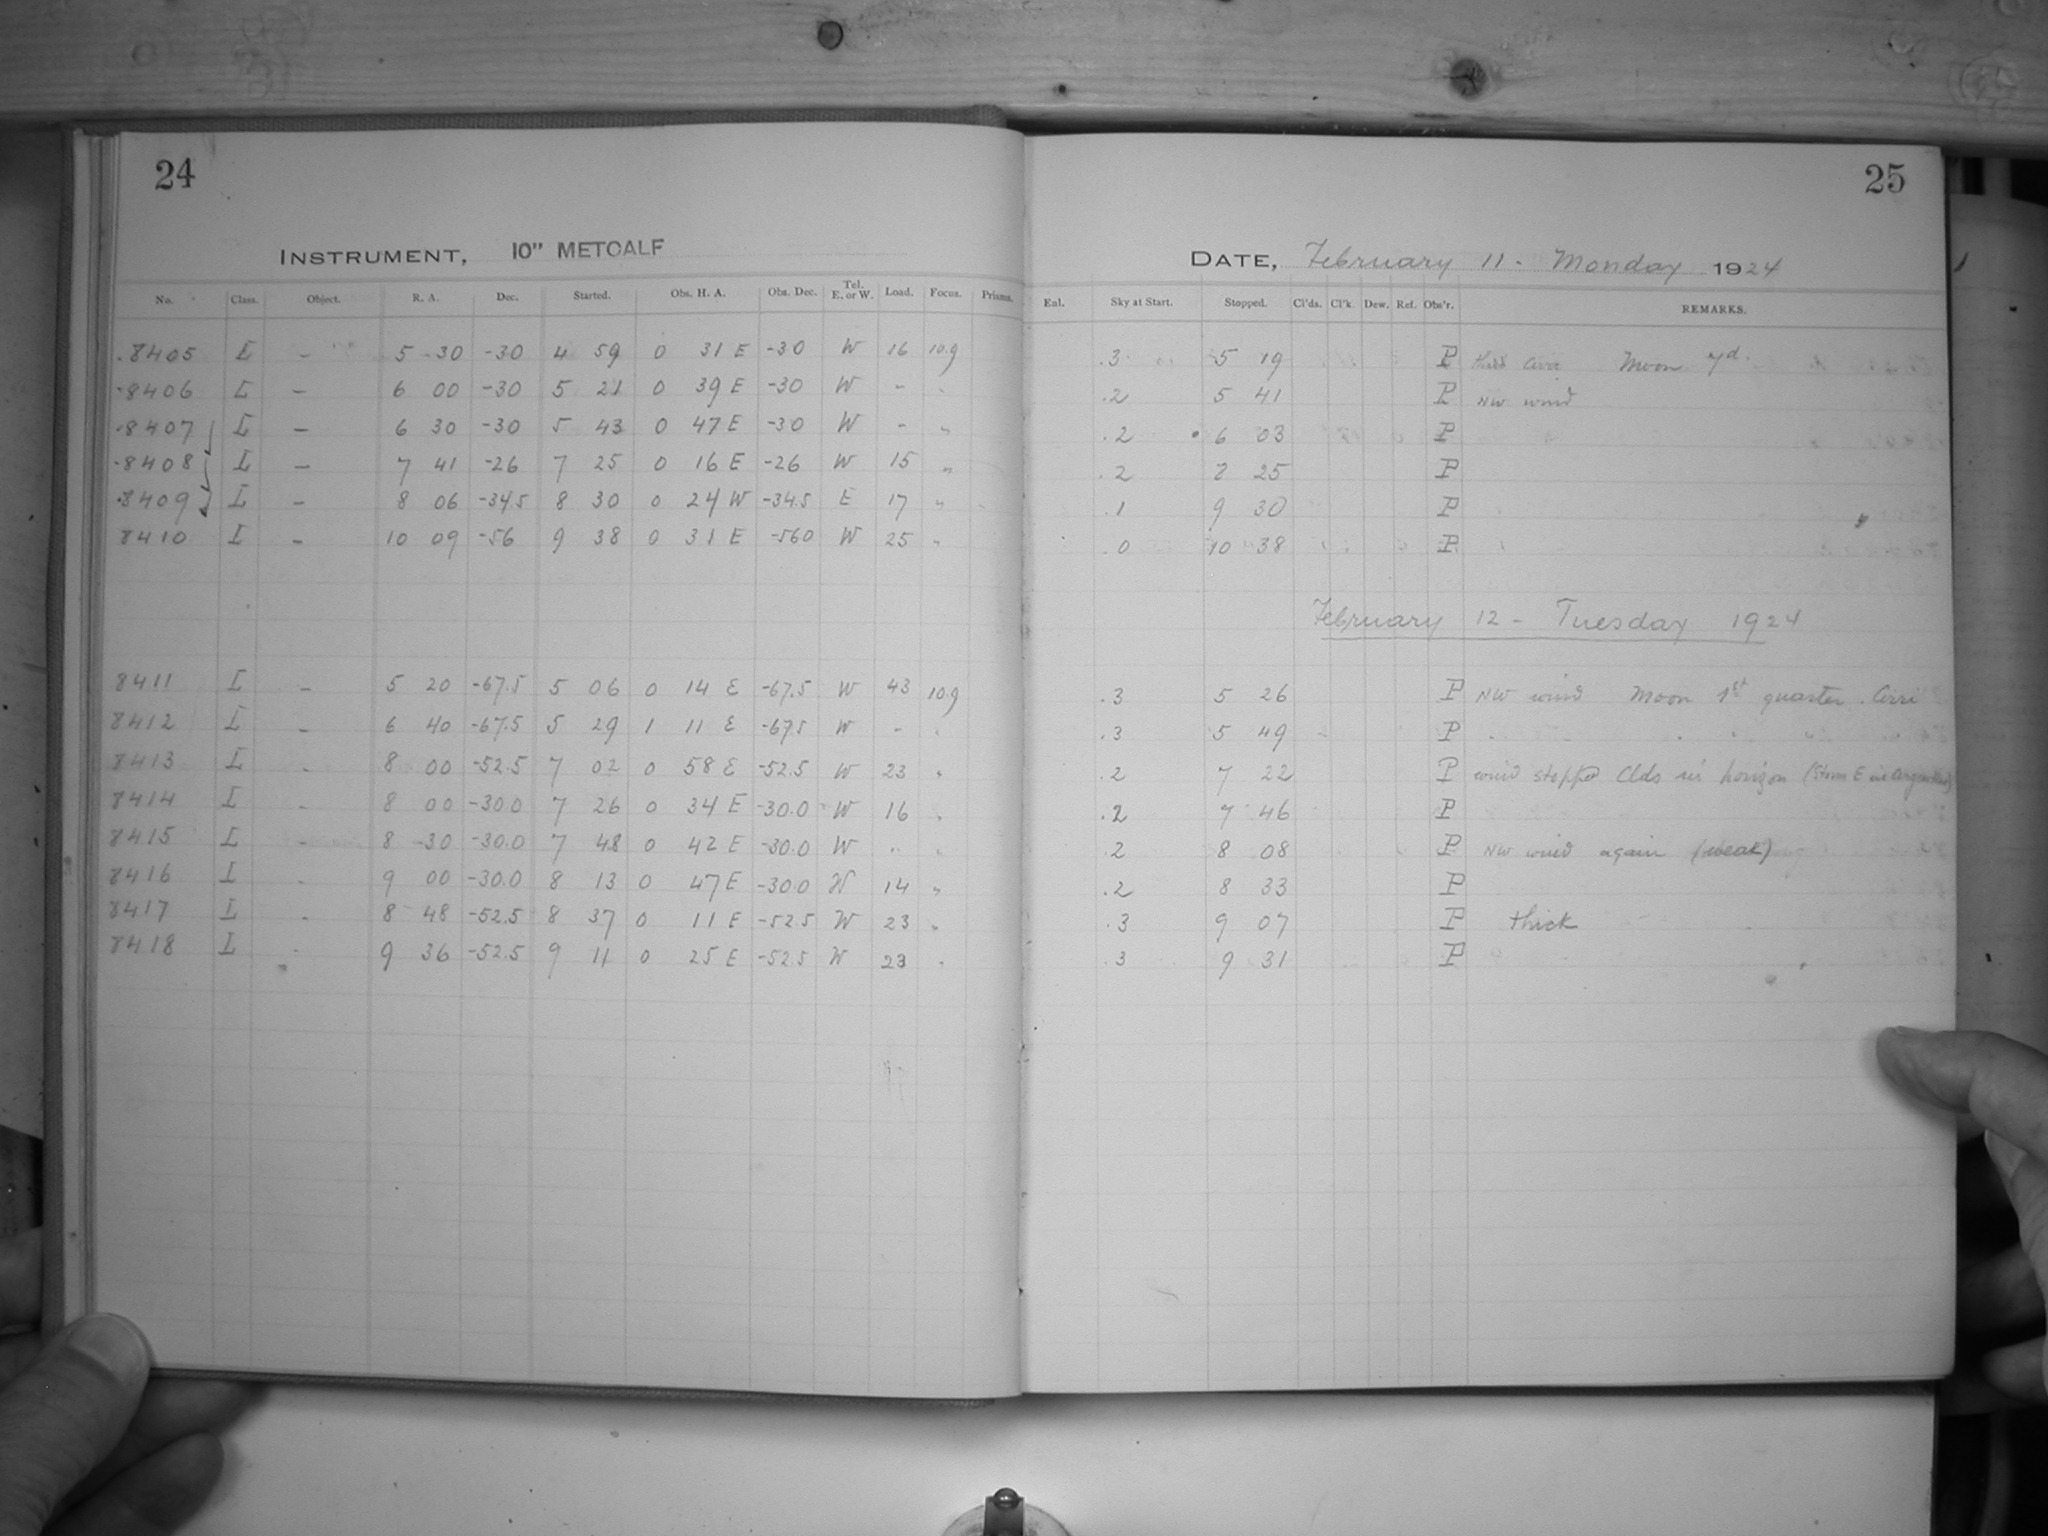 24
INSTRUMENT, 10" METCALF
No. Class. Object. R. A. Dec. Started. Obs. H. A. Obs. Dec. Tel. E. or W. Load. Focus. Prisms.
.8405 L - 5 30 -30 4 59 0 31 E -30 W 16 10.9
.8406 L - 6 00 -30 5 21 0 39 E -30 W - "
.8407 L - 6 30 -30 5 43 0 47 E -30 W - "
.8408 L - 7 41 -26 7 25 0 16 E -26 W 15 "
.8409 L - 8 06 -34.5 8 30 0 24 W -34.5 E 17 "
8410 L - 10 09 -56 9 38 0 31 E -560 W 25 "
8411 L - 5 20 -67.5 5 06 0 14 E -67.5 W 43 10.9
8412 L - 6 40 -67.5 5 29 1 11 E -675 W - "
8413 L - 8 00 -52.5 7 02 0 58 E -52.5 W 23 "
8414 L - 8 00 -30.0 7 26 0 34 E -30.0 W 16 "
8415 L - 8 30 -30.0 7 48 0 42 E -30.0 W " "
8416 L - 9 00 -30.0 8 13 0 47 E -30.0 W 14 "
8417 L - 8 48 -52.5 8 37 0 11 E -52.5 W 23 "
8418 L - 9 36 -52.5 9 11 0 25 E -52.5 W 23 "
25
DATE, February 11 - Monday 1924
Enl. Sky at Start. Stopped. Cl'ds. Cl'k. Dew. Ref. Obs'r. REMARKS.
.3 5 19 P Moon yd.
.2 5 41 P NW wind
.2 6 03 P
.2 8 25 P
.1 9 30 P
.0 10 38 P
February 12 - Tuesday 1924
.3 5 26 P NW wind Moon 1st quarter. Cirri
.3 5 49 P
.2 7 22 P wind stopped Clds in horizon (Storm E in
.2 7 46 P
.2 8 08 P NW wind again (weak)
.2 8 33 P
.3 9 07 P thick
.3 9 31 P